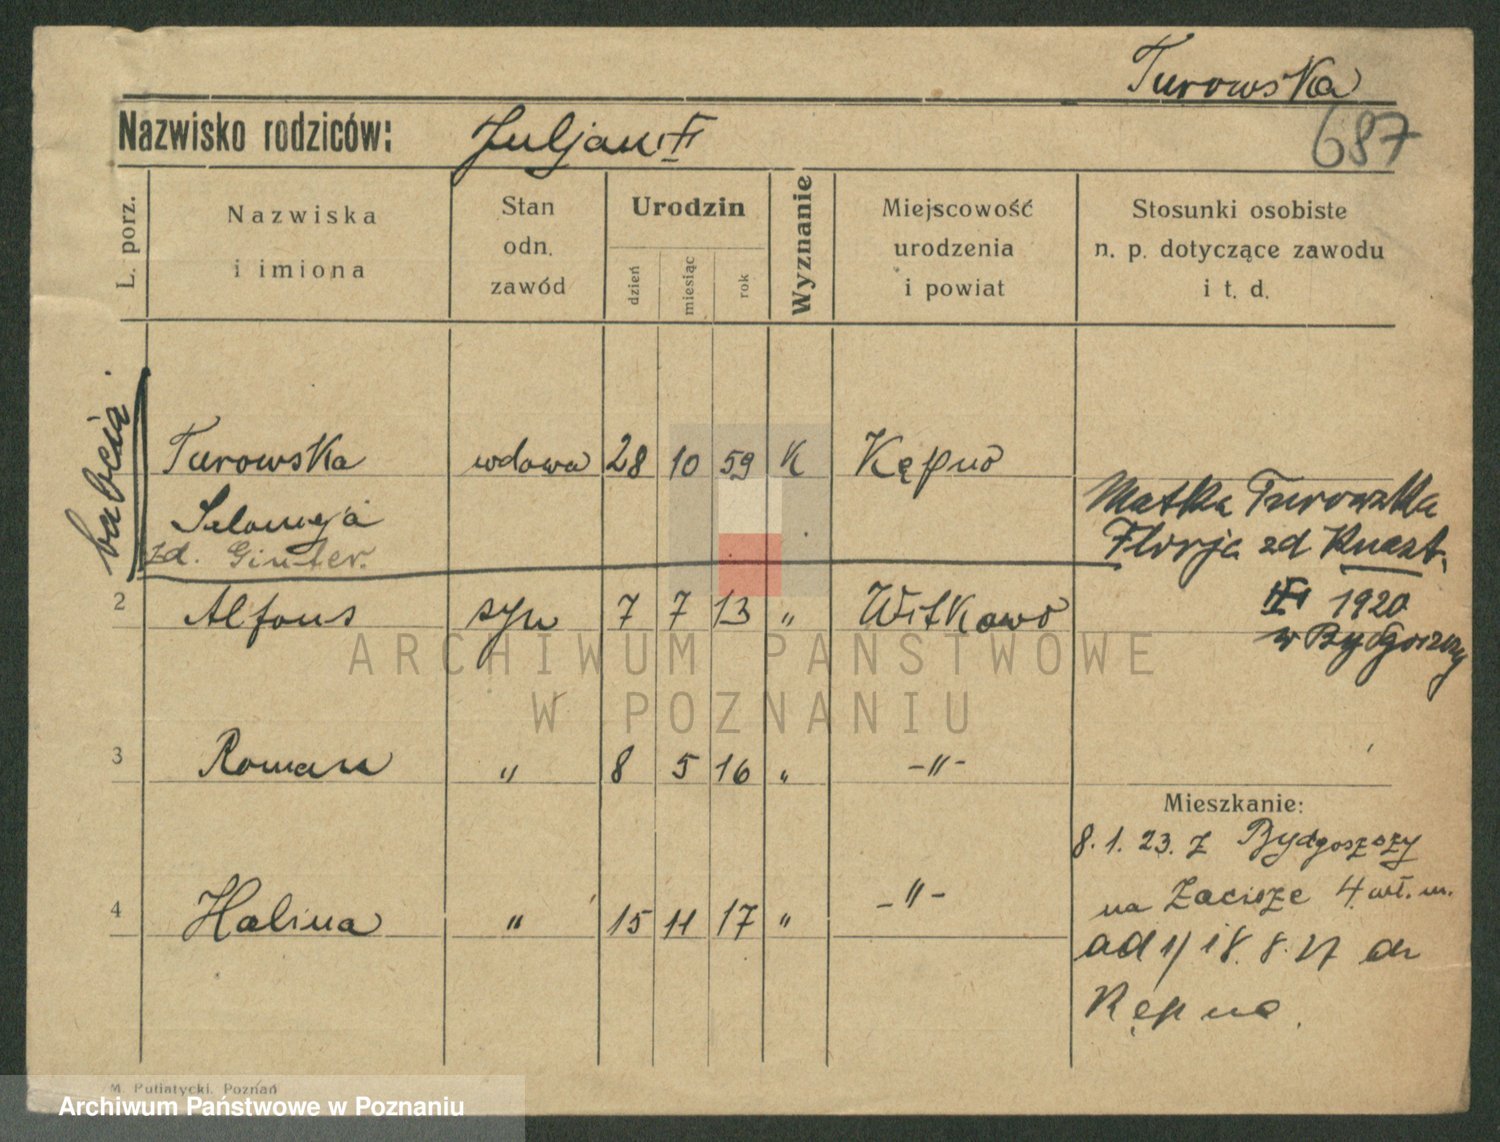 Turowska
Nazwisko rodziców: Juljan
687
L. porz.
Nazwiska
i imiona
Stan
odn.
zawód
Urodzin
dzień
miesiąc
rok
Wyznanie
Miejscowość
urodzenia
i powiat
Stosunki osobiste
n. p. dotyczące zawodu
i t. d.
babcia
Turowska wdowa 28 10 59 K Kępno
Salomeja
zd. Ginter.
Matka Turowska
Florja zd
1920
w Bydgoszczy
2 Alfons syn 7 7 13 " Witkowo
ARCHIWUM PAŃSTWOWE
W POZNANIU
3 Roman " 8 5 16 " -"-
Mieszkanie:
8. 1. 23. z Bydgoszczy
na Zacisze 4 wł. m.
4 Halina " 15 11 17 " -"-
ad 1/ 18. 8. 27 do
Kępna.
M. Putiatycki, Poznań
Archiwum Państwowe w Poznaniu